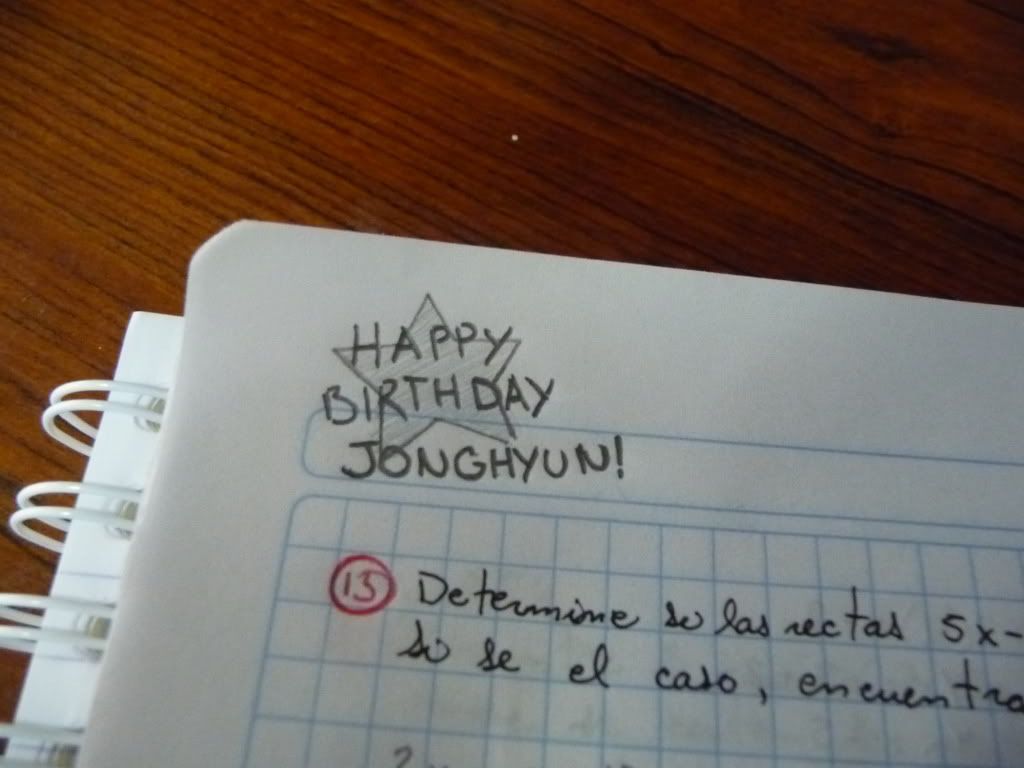 HAPPY
BIRTHDAY
JONGHYUN!
15 Determine si las rectas 5x-
si se el caso, encuentra
2